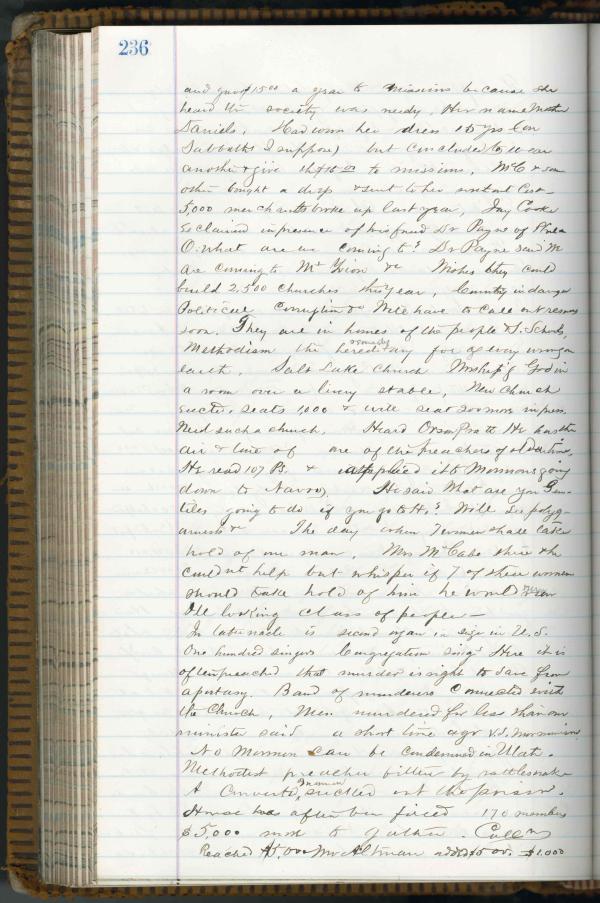 236
and gave $1500 a year to missions because she
heard the society was needy. Her name Mother
Daniels. Had worn her dress 15 yrs (on
Sabbaths I suppose) but concluded to wear
another & give the $15.00 to missions. McC & some
other bought a dress & sent to her without cost
5,000 merchants broke up last year. Jay Cooke
exclaimed in presence of his friend Dr Payne of Phila
O. what are we coming to? Dr Payne said We
are coming to Mt Zion &c Wishes they could
build 2,500 churches this year. Country in danger
Political Corruption & Will have to call out
soon. They are in homes of the people S. Schools,
Methodism the hereditary remedy for every wrong on
earth. Salt Lake Church Worship'g God in
a room over a livery stable. New Church
erected. seats 1000 & will seat 200 more in
Need such a church. Heard Orson Pratt He has the
air & tone of one of the preachers of olden time.
He read 107 Ps. & applied it to Mormons going
down to He said What are you Gen-
tiles going to do if you go to H.? Will see polyg-
amists &c The day when 7 women shall take
hold of one man. Mrs McCabe there & he
could nt help but whisper if 7 of these women
should take hold of him he would
Ill looking class of people —
In tabernacle is second organ in size in U.S.
One hundred singers Congregation sing's Here it is
often preached that murder is right to save from
apostasy. Band of murderers connected with
the Church. Men murdered for less than our
minister said a short time ago v.s. Mormonism
No Mormon can be condemned in Utah.
Methodist preacher bitten by rattlesnake
A Converted Mormon suckled out the poison.
House has often been fired 170 members
$5,000 more to gather. Coll n
Reached $5,000 Mr Altman added $500. $1.000